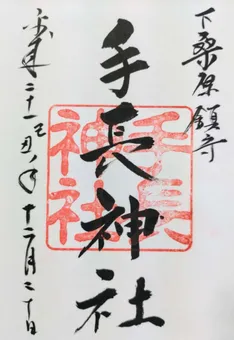 下桑原鎮守
手長神社
手長神社
平成二十一己丑年十二月三十日